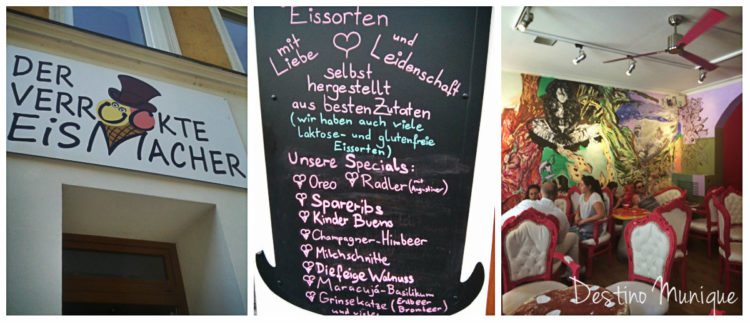 DER
VERRÜCKTE
EiSMACHER
Eissorten
mit Liebe und Leidenschaft
selbst
hergestellt
aus besten Zutaten
(wir haben auch viele
laktose- und glutenfreie
Eissorten)
Unsere Specials:
Oreo Radler (mit Augustiner)
Spareribs
Kinder Bueno
Champagner-Himbeer
Milchschnitte
Die feige Walnuss
Maracujá-Basilikum
Grinsekatze (Erdbeer Brombeer)
und vieles
Destino Munique